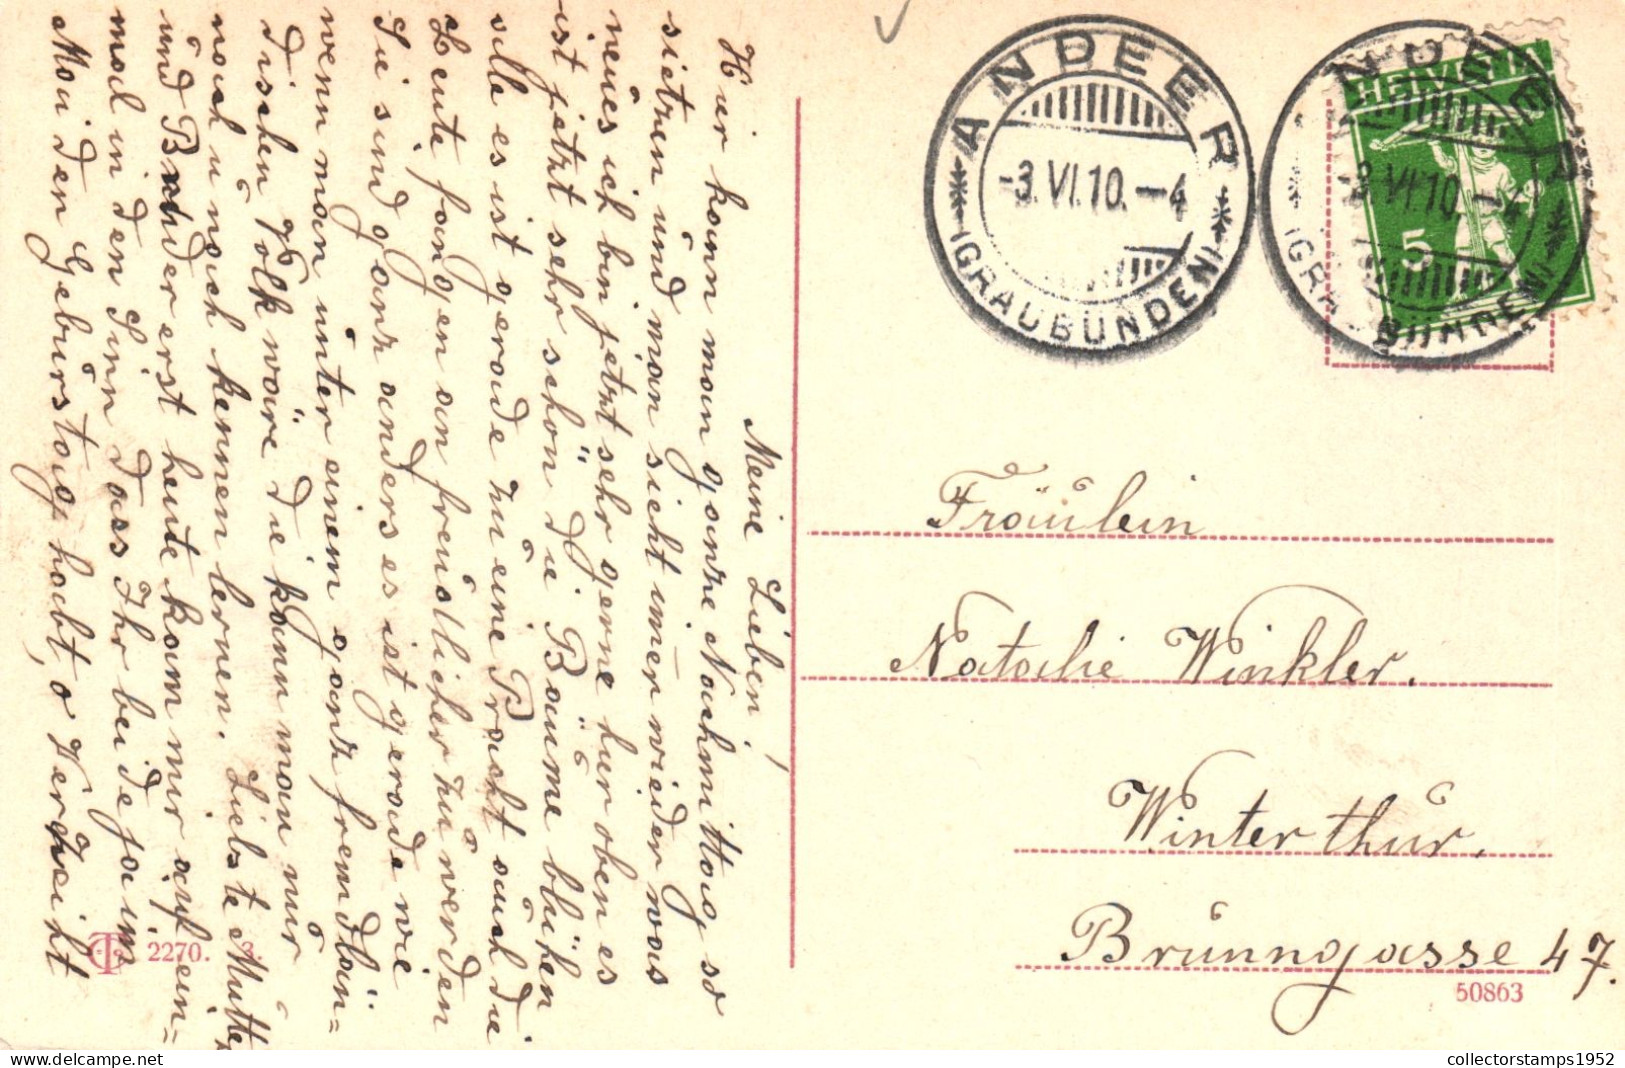 Meine Lieben!
Hier kann man ganze Nachmittag so
sietzen und man sieht imer wieder was
neues ich bin jetzt sehr gerne hier oben es
ist jetzt sehr schön die Bäume blühen
alle es ist gerade zu eine Pracht auch die
Leute fangen an freundlicher zu werden
Sie sind ganz anders es ist gerade wie
wenn man unter einem ganz fremdlän=
dischen Volk wäre die kann man nur
nach u nach kennen lernen. Liebste Mutter
und Bruder erst heute kam mir auf ein=
mal in den Sinn dass Ihr beide ja im
Mai den Geburstag habt, o Verzeiht
ANDEER
-3.VI.10.-4
(GRAUBÜNDEN)
ANDEER
-3.VI.10.-4
(GRAUBÜNDEN)
HELVETIA
5
Fräulein
Natalie Winkler.
Winterthur.
Brunngasse 47.
2270. 3.
50863
collectorstamps1952